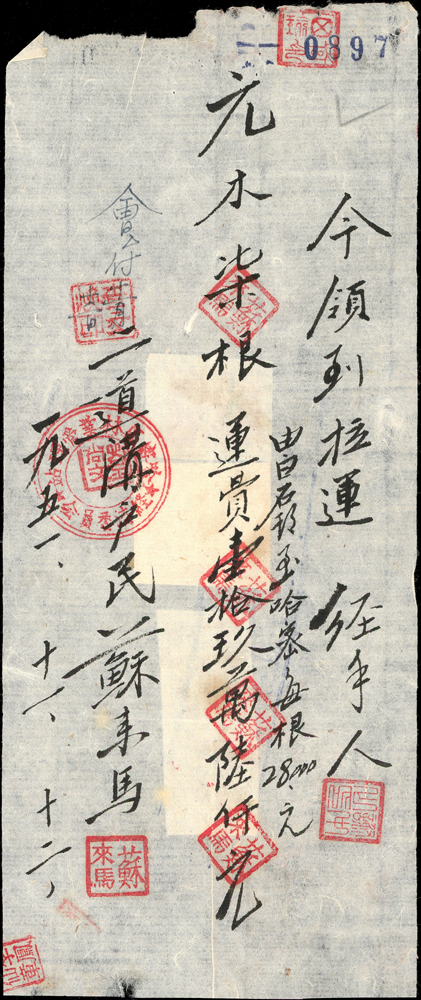 0897
今領到拉運 經手人
元木柒根 運費壹拾玖萬陸仟元
由白石頭至哈密每根28000元
會付
二道溝戶民蘇來馬
蘇來馬
一九五一、十一、十二、